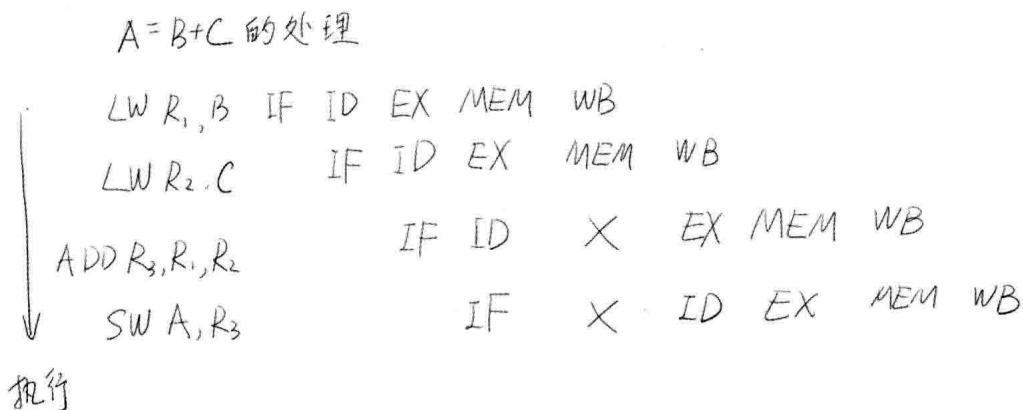 A=B+C 的处理
LW R₁,B IF ID EX MEM WB
LW R₂.C IF ID EX MEM WB
ADD R₃,R₁,R₂ IF ID X EX MEM WB
SW A,R₃ IF X ID EX MEM WB
执行